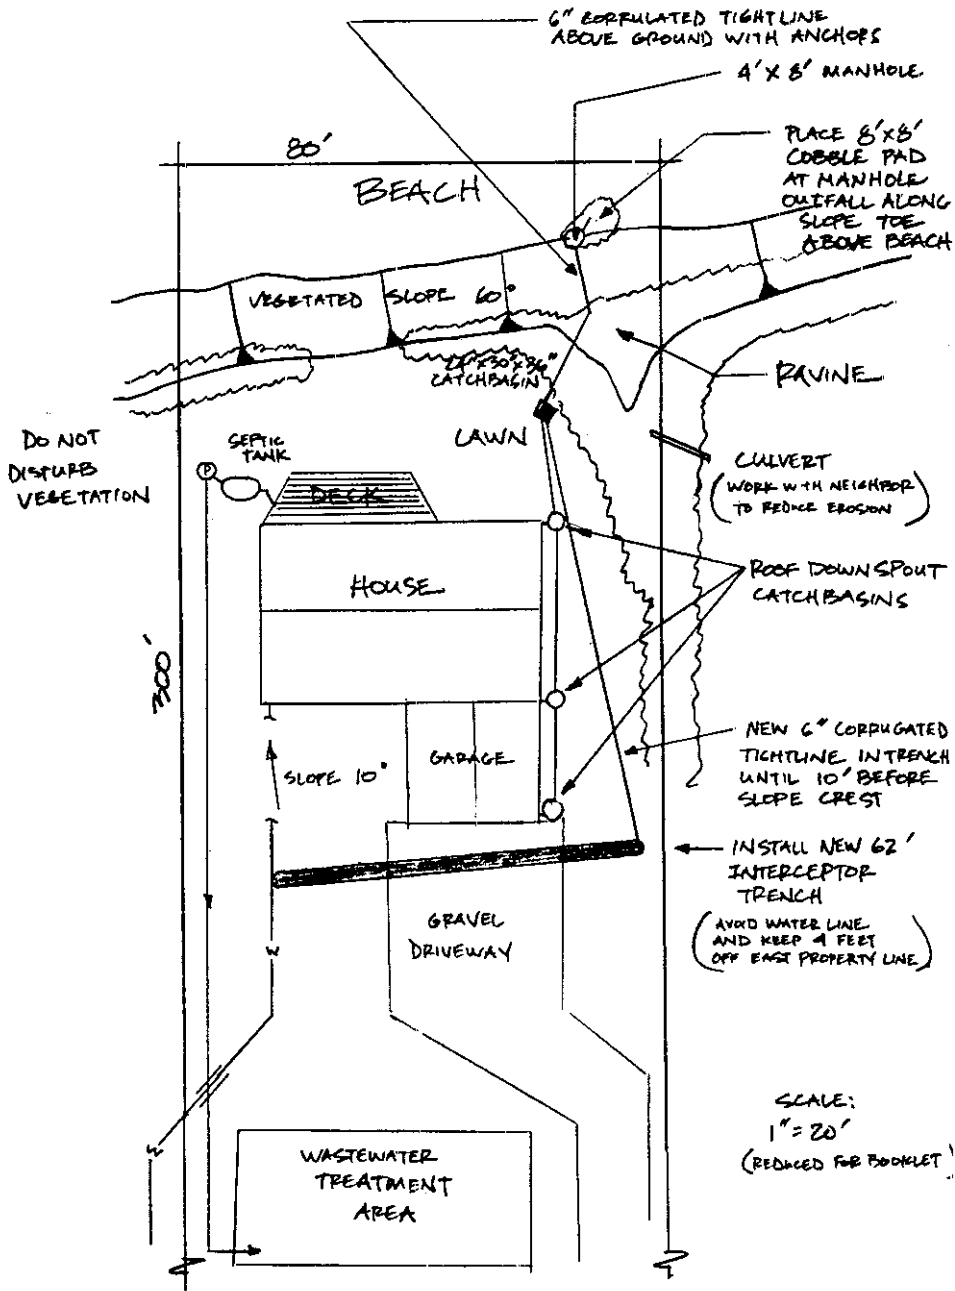 6" CORRULATED TIGHTLINE
ABOVE GROUND WITH ANCHORS
4' X 8' MANHOLE
80'
PLACE 8'X8'
COBBLE PAD
AT MANHOLE
OUTFALL ALONG
SLOPE TOE
ABOVE BEACH
BEACH
VEGETATED SLOPE 60°
CATCHBASIN
RAVINE
LAWN
DO NOT
DISTURB
VEGETATION
SEPTIC
TANK
P
DECK
CULVERT
(WORK WITH NEIGHBOR
TO REDUCE EROSION)
HOUSE
ROOF DOWNSPOUT
CATCHBASINS
300'
GARAGE
SLOPE 10°
NEW 6" CORRUGATED
TIGHTLINE IN TRENCH
UNTIL 10' BEFORE
SLOPE CREST
INSTALL NEW 62'
INTERCEPTOR
TRENCH
(AVOID WATER LINE
AND KEEP 4 FEET
OFF EAST PROPERTY LINE)
GRAVEL
DRIVEWAY
W
W
SCALE:
1" = 20'
(REDUCED FOR BOOKLET)
WASTEWATER
TREATMENT
AREA